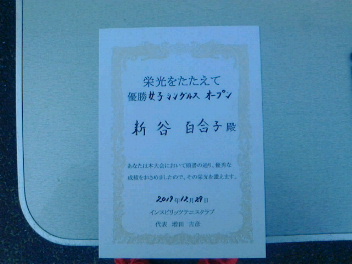 栄光をたたえて
優勝 女子シングルス オープン
新谷 百合子 殿
あなたは本大会において頭書の通り、優秀な
成績をおさめましたので、その栄誉を讃えます。
2019年12月29日
インスピリッツテニスクラブ
代表